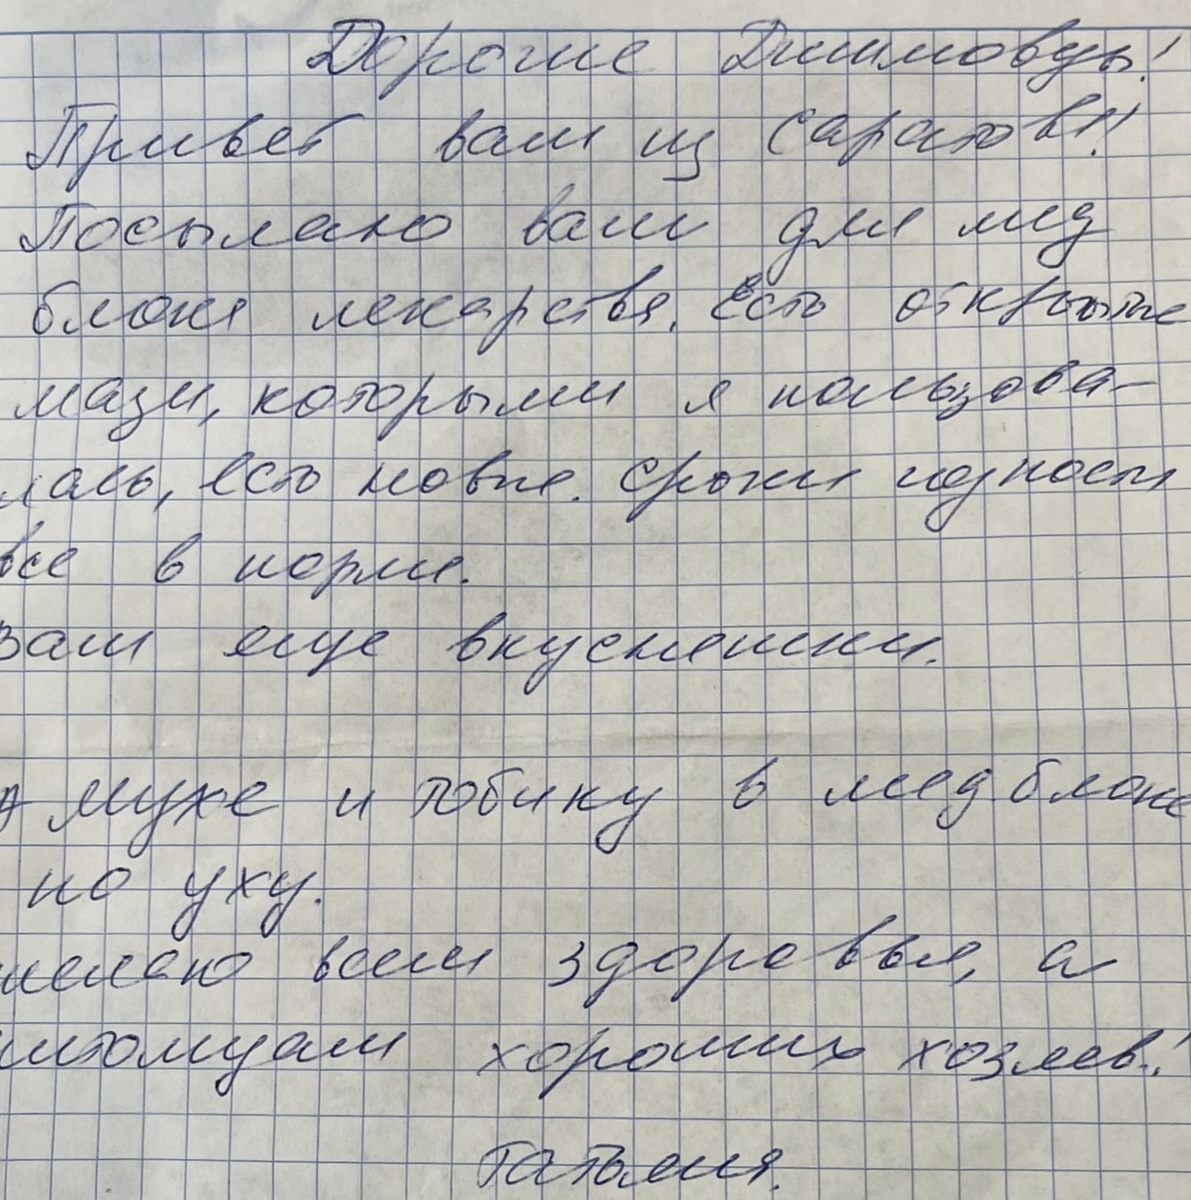 Дорогие Диммовцы!
Привет вам из Саратова!!
Посылаю вам для мед
блока лекарства. Есть открытые
мази, которыми я пользова-
лась, есть новые. Сроки годности
все в норме.
Вам еще вкусняшки.
А Мухе и Тобику в мед. блоке
по уху.
Желаю всем здоровья, а
питомцам хороших хозяев!
Татьяна.